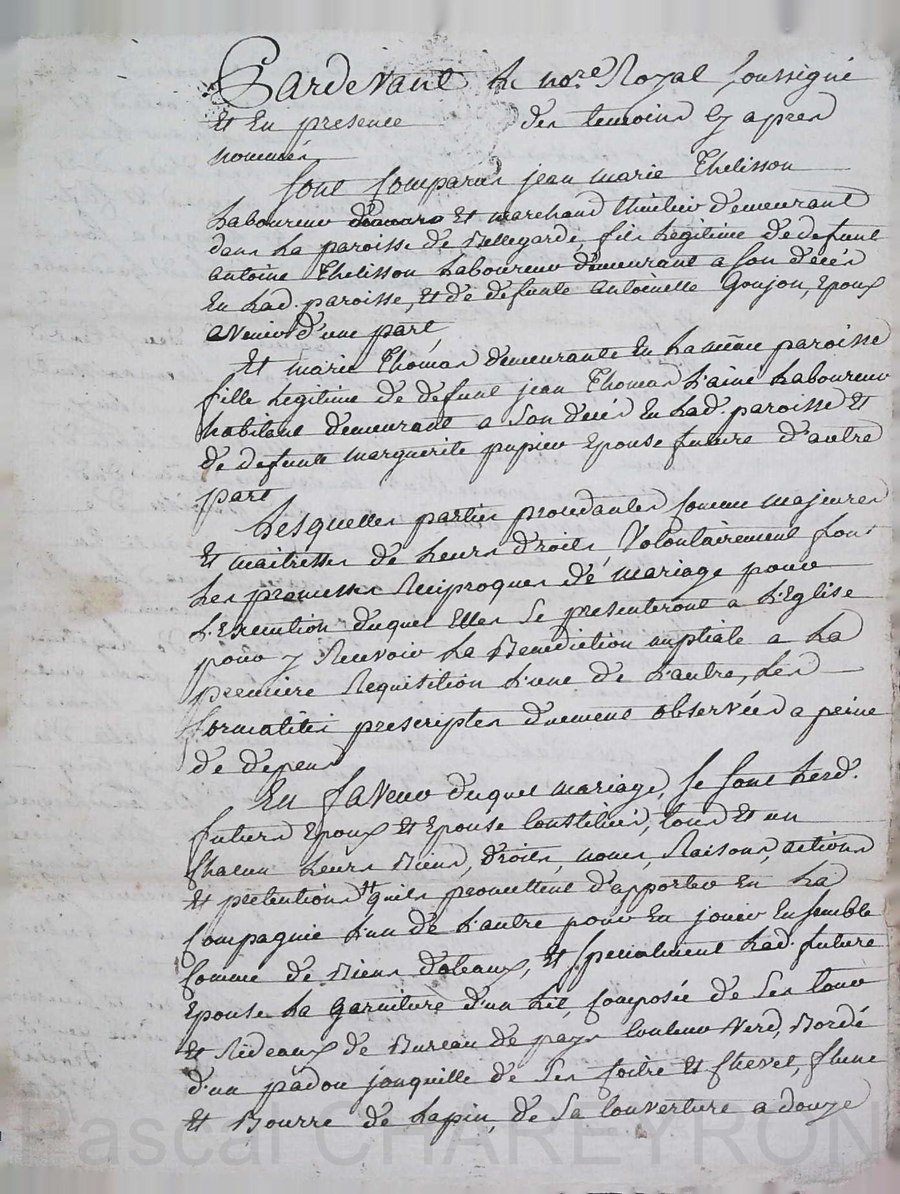 Pardevant le nore. Royal soussigné
et En presence des temoins cy apres
nommés
Sont Comparus jean marie Thelisson
Laboureur et marchand thuilier demeurant
dans la paroisse de Bellegarde, fils Légitime de defunt
antoine Thelisson Laboureur demeurant a son décés
En Lad. paroisse, et de defunte antoinette Goujon, Epoux
avenir d'une part
Et marie Thomas demeurante En la même paroisse
fille Légitime de defunt jean Thomas L'ainé Laboureur
habitant demeurant a son décés En Lad. paroisse Et
de defunte marguerite pupier Epouse future d'autre
part
Lesquelles parties procedantes Comme majeures
et maitresses de Leurs droits Volontairement font
Les promesses Reciproques de mariage pour
L'Execution duquel Elles se presenteront a L'Eglise
pour y Recevoir La Benediction nuptiale a La
premiere Requisition L'une de L'autre, Les
formalités prescriptes duement observées a peine
de depens
En faveur duquel mariage, se sont Lesd.
futurs Epoux et Epouse Constitués, tous Et un
Chacun Leurs Biens, droits, noms, Raisons, actions
et pretentions qu'ils promettent d'apporter En La
Compagnie L'un de L'autre pour En jouir Ensemble
Comme de Biens dotaux, Et specialement Lad. future
Epouse La garniture d'un Lit, Composée de Ses tour
et Rideaux de Bureau de pays Couleur Verd, Bordé
d'un padou jonquille de Ses Coitre et Chevet, plume
et Bourre de Lapin, de Sa Couverture a douze
Pascal CHAREYRON